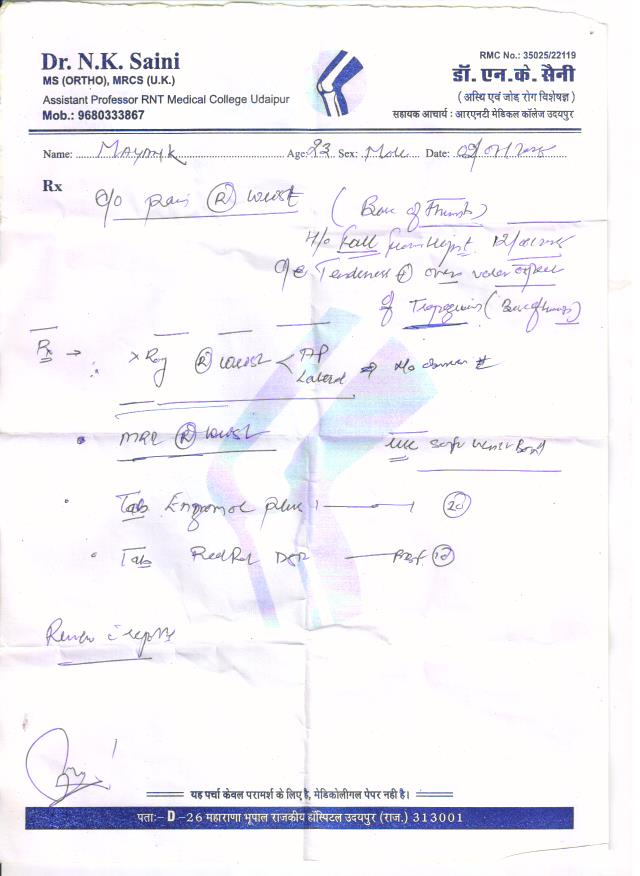 Dr. N.K. Saini
MS (ORTHO), MRCS (U.K.)
Assistant Professor RNT Medical College Udaipur
Mob.: 9680333867
RMC No.: 35025/22119
डॉ. एन. के. सैनी
(अस्थि एवं जोड़ रोग विशेषज्ञ)
सहायक आचार्य : आरएनटी मेडिकल कॉलेज उदयपुर
Name: MAYANK Age: 23 Sex: Male Date:
Rx
c/o pain (R) wrist
(Base of Thumb)
H/o Fall from height
o/e Tenderness (+) over volar aspect
of Trapezium (Base of thumb)
Rx →
X Ray (R) wrist < AP
Lateral
MRI (R) wrist
Tab
Tab
Review c reports
यह पर्चा केवल परामर्श के लिए है, मेडिकोलीगल पेपर नही है।
पताः- D - 26 महाराणा भूपाल राजकीय हॉस्पिटल उदयपुर (राज.) 313001